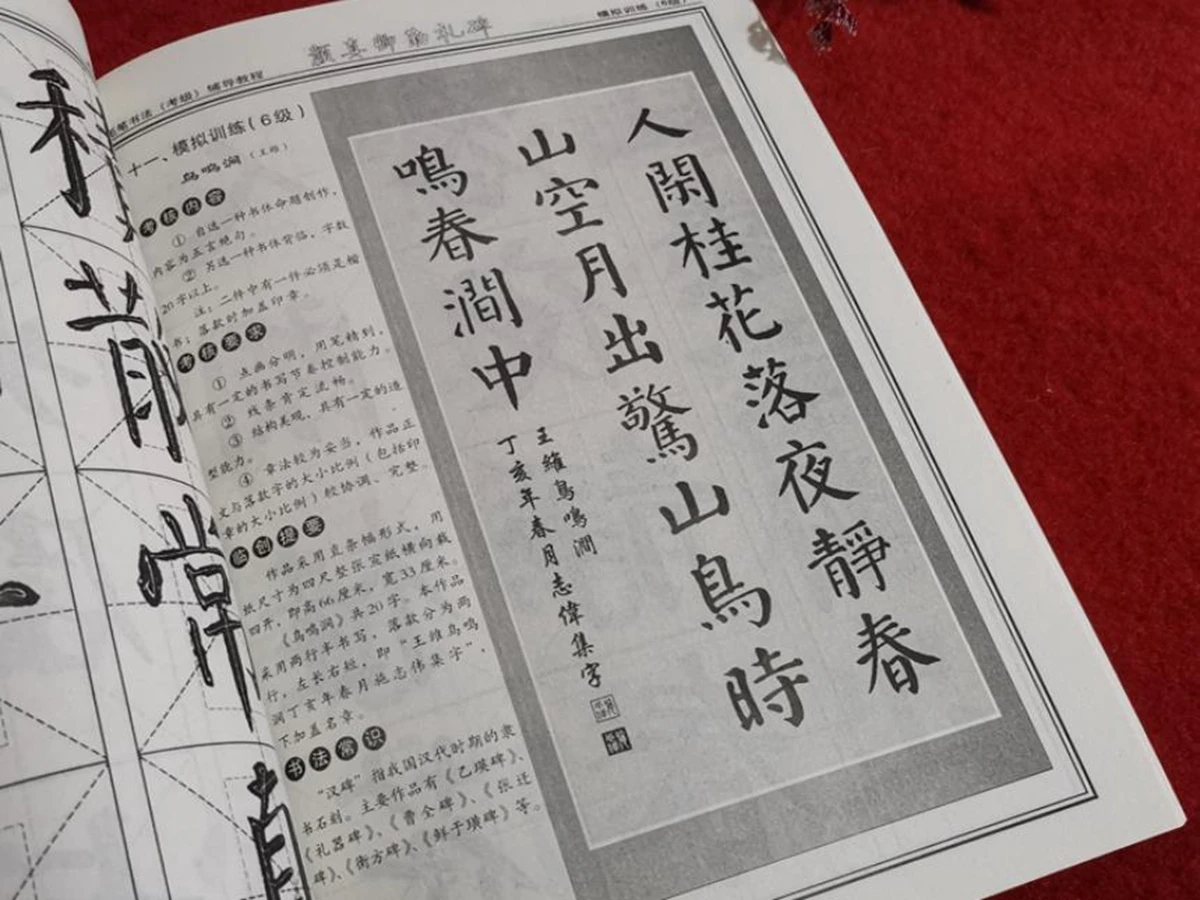 颜真卿勤礼碑
模拟训练（6级）
毛笔书法（考级）辅导教程
十一、模拟训练（6级）
鸟鸣涧（王维）
考核内容
① 自选一种书体命题创作，
内容为五言绝句。
② 另选一种书体背临，字数
20字以上。
注：二件中有一件必须是楷
书；落款时加盖印章。
考核要求
① 点画分明，用笔精到，
具有一定的书写节奏控制能力。
② 线条肯定流畅。
③ 结构美观，具有一定的造
型能力。
④ 章法较为妥当，作品正
文与落款字的大小比例（包括印
章的大小比例）较协调、完整。
临创提要
作品采用直条幅形式，用
纸尺寸为四尺整张宣纸横向裁
四开，即高66厘米，宽33厘米。
《鸟鸣涧》共20字。本作品
采用两行半书写，落款分为两
行，左长右短，即“王维鸟鸣
涧丁亥年春月施志伟集字”，
下加盖名章。
书法常识
“汉碑”指我国汉代时期的隶
书石刻。主要作品有《乙瑛碑》、
《礼器碑》、《曹全碑》、《张迁
碑》、《衡方碑》、《鲜于璜碑》等。
人閑桂花落夜靜春
山空月出驚山鳥時
鳴春澗中
王維鳥鳴澗
丁亥年春月志偉集字